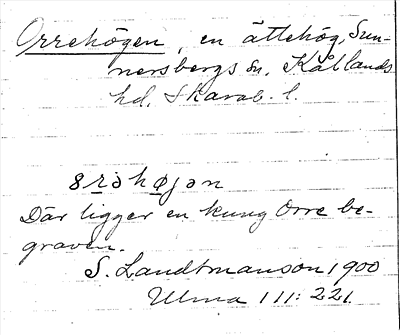 Orrehögen, en ättehög, Sun-
nersbergs sn, Kållands
hd, Skarab. l.
8rəhøjən
Där ligger en kung Orre be-
graven.
S. Landtmanson 1900
Ulma 111: 221